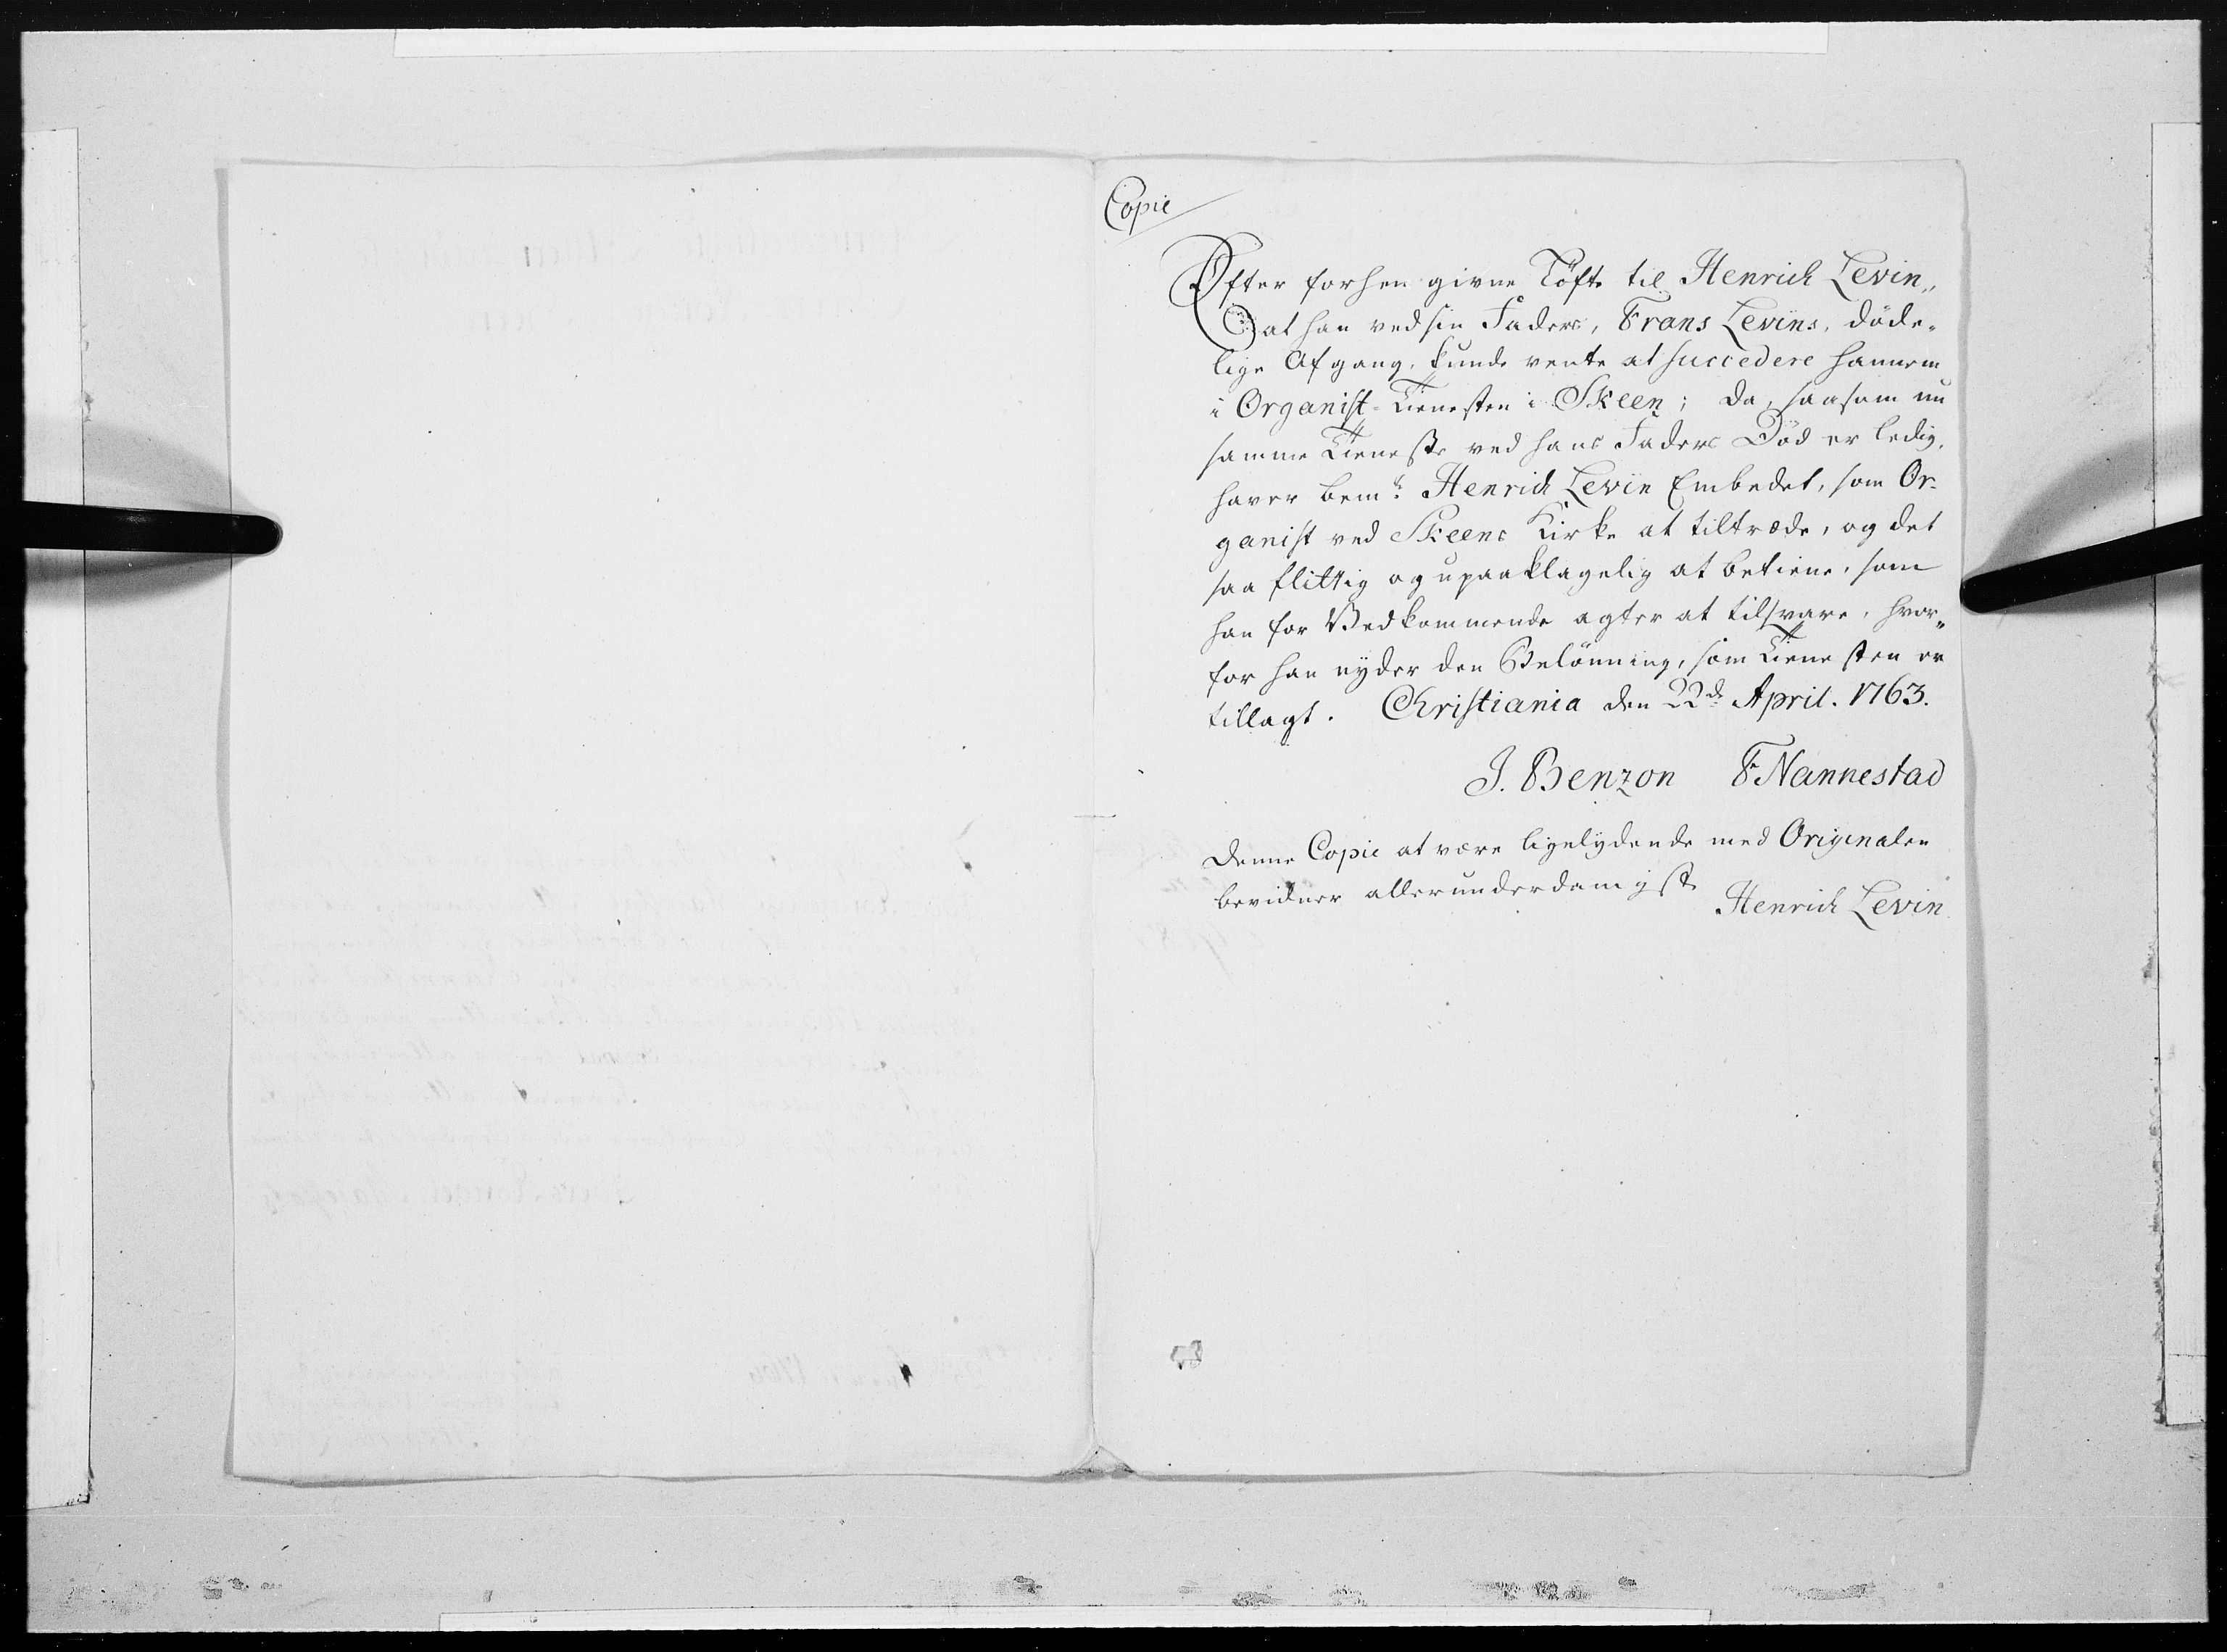 Copie
Efter forhen givne Löfte til Henrich Levin,,
at han ved sin Faders, Frans Levins, döde-
lige Afgang, kunde vente at succedere hannem
i Organist-Tienesten i Skeen; da, saasom nu
samme Tieneste ved hans Faders Död er ledig,
haver bemte Henrich Levin Embedet, som Or-
ganist ved Skeens Kirke at tiltræde, og det
saa flittig og upaaklagelig at betiene, som
han for Vedkommende agter at tilsvare, hvor-
for han nyder den Belönning, som Tienesten er
tillagt. Christiania den 22de April. 1763.
J. Benzon F Nannestad
Denne Copie at være ligelydende med Originalen
bevidner allerunderdanigst
Henrich Levin